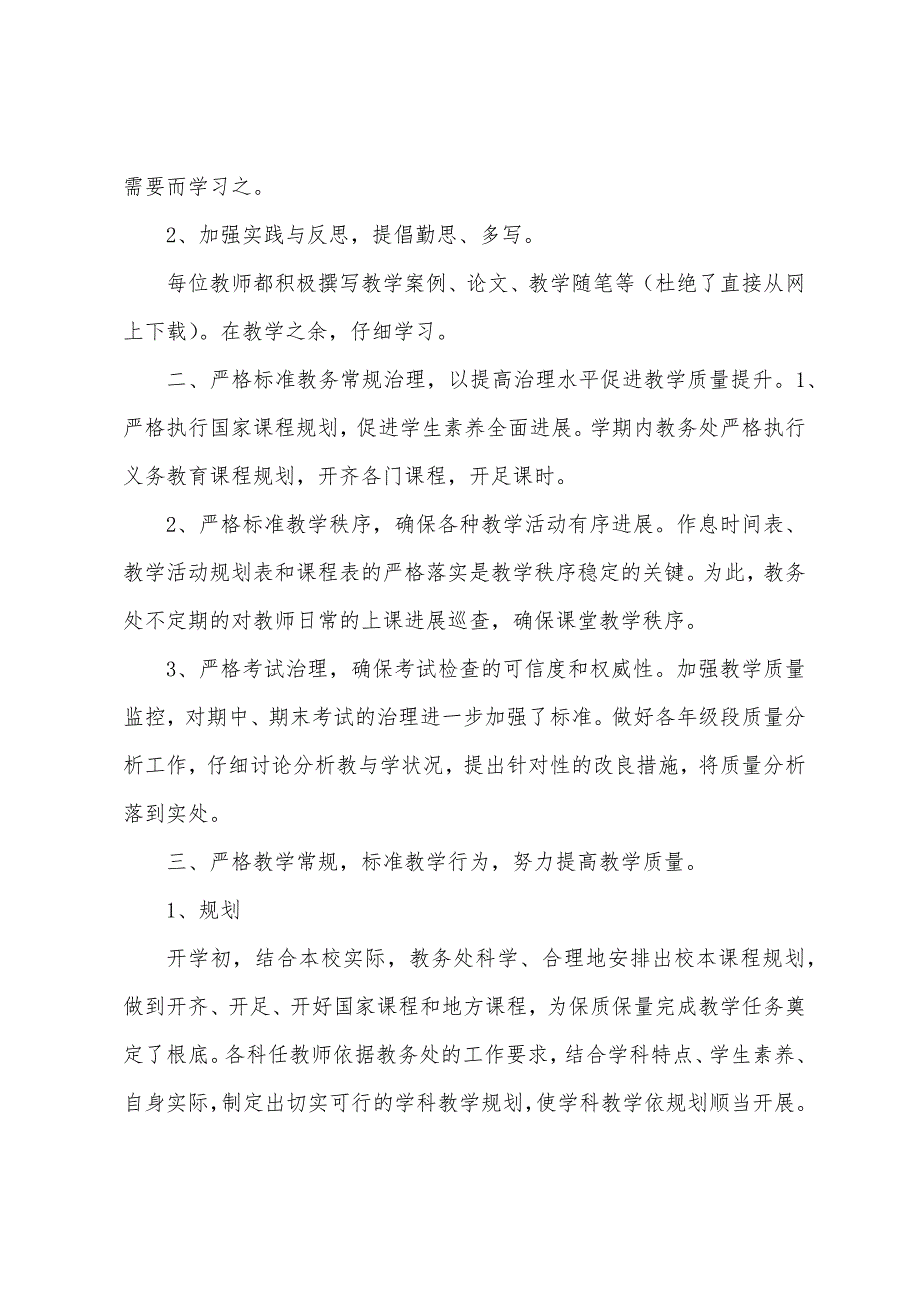 需要而学习之。
2、加强实践与反思，提倡勤思、多写。
每位教师都积极撰写教学案例、论文、教学随笔等（杜绝了直接从网
上下载）。在教学之余，仔细学习。
二、严格标准教务常规治理，以提高治理水平促进教学质量提升。1、
严格执行国家课程规划，促进学生素养全面进展。学期内教务处严格执行
义务教育课程规划，开齐各门课程，开足课时。
2、严格标准教学秩序，确保各种教学活动有序进展。作息时间表、
教学活动规划表和课程表的严格落实是教学秩序稳定的关键。为此，教务
处不定期的对教师日常的上课进展巡查，确保课堂教学秩序。
3、严格考试治理，确保考试检查的可信度和权威性。加强教学质量
监控，对期中、期末考试的治理进一步加强了标准。做好各年级段质量分
析工作，仔细讨论分析教与学状况，提出针对性的改良措施，将质量分析
落到实处。
三、严格教学常规，标准教学行为，努力提高教学质量。
1、规划
开学初，结合本校实际，教务处科学、合理地安排出校本课程规划，
做到开齐、开足、开好国家课程和地方课程，为保质保量完成教学任务奠
定了根底。各科任教师依据教务处的工作要求，结合学科特点、学生素养、
自身实际，制定出切实可行的学科教学规划，使学科教学依规划顺当开展。